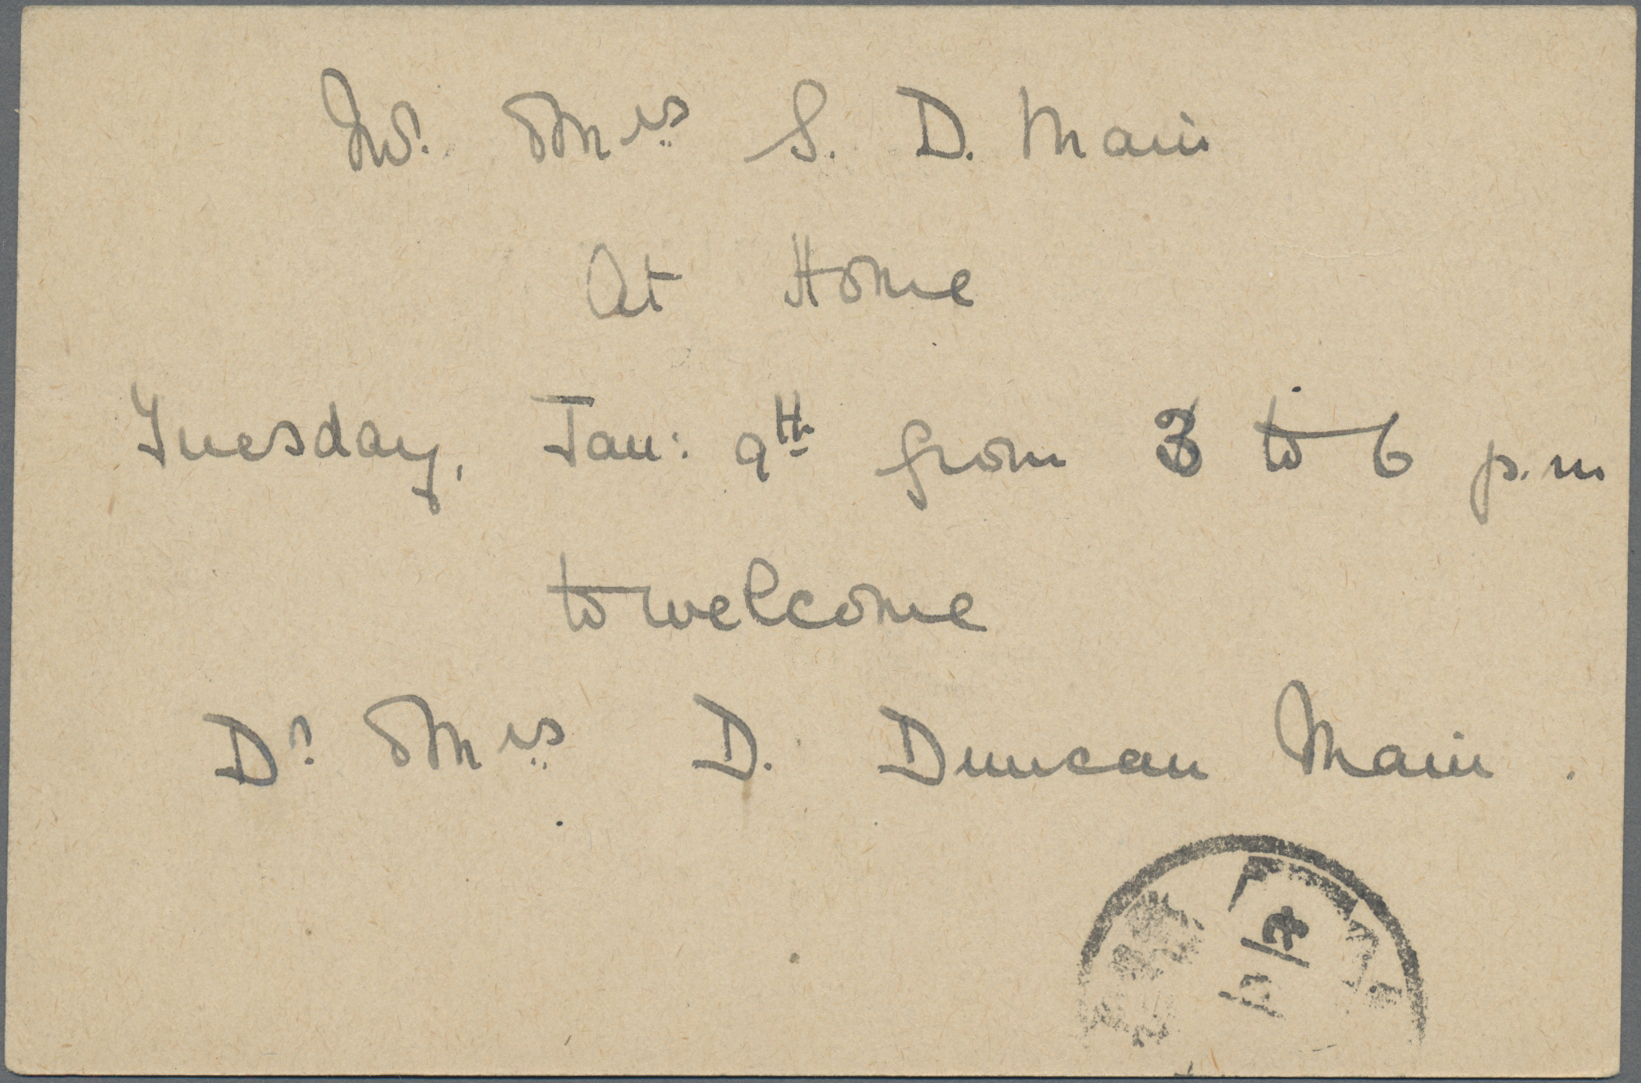 Mr. & Mrs S. D. Main
At Home
Tuesday, Jan: 9th from 3 to 6 p.m
to welcome
Dr. & Mrs D. Duncan Main.